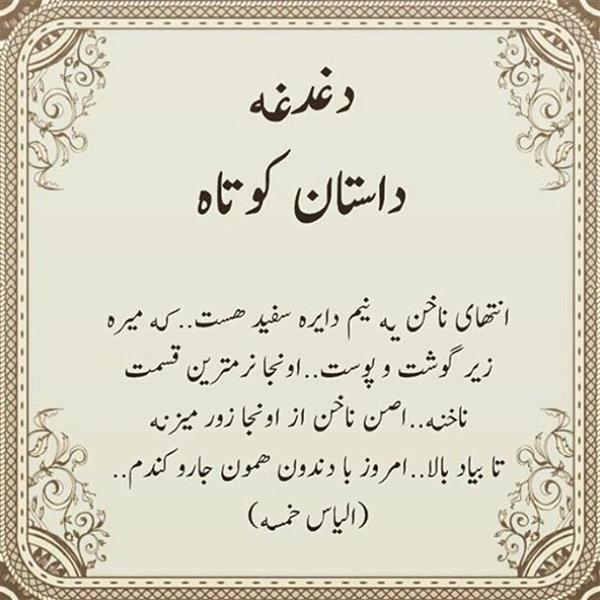 دغدغه
داستان کوتاه
انتهای ناخن یه نیم دایره سفید هست.. که میره
زیر گوشت و پوست..اونجا نرمترین قسمت
ناخنه..اصن ناخن از اونجا زور میزنه
تا بیاد بالا..امروز با دندون همون جارو کندم..
(الیاس خمسه)